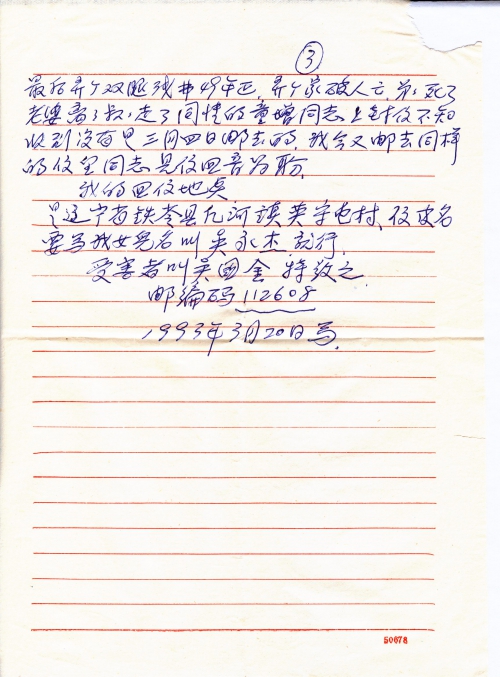 ③
最后弄个双腿残
49年正，弄个家破人亡，弟：死了
老婆
走了同情的童增同志上封信不知
收到没有是三月四日邮去的，我今又邮去同样
的信望同志见信回音为盼，
我的回信地点
是辽宁省铁岭县凡河镇英守屯村、信皮名
要写我女儿名叫吴永杰就行，
受害者叫吴国金 特致之
邮编码112608
1993年3月20日写，
50678